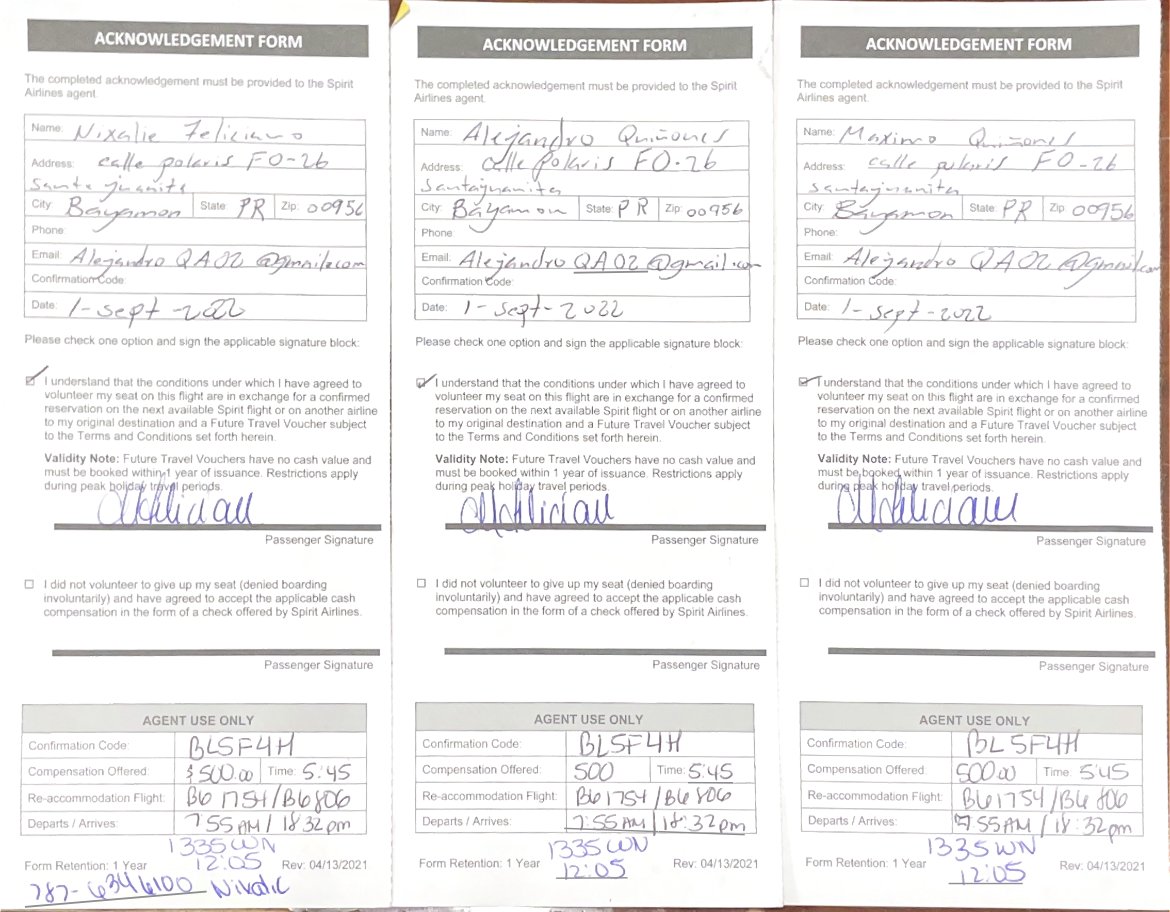 ACKNOWLEDGEMENT FORM
The completed acknowledgement must be provided to the Spirit
Airlines agent.
Name: Nixalie Feliciano
Address: calle polaris FO-26
Santa juanita
City: Bayamon State: PR Zip: 00956
Phone:
Email: AlejandroQA02@gmail.com
Confirmation Code
Date: 1-sept-2022
Please check one option and sign the applicable signature block:
I understand that the conditions under which I have agreed to
volunteer my seat on this flight are in exchange for a confirmed
reservation on the next available Spirit flight or on another airline
to my original destination and a Future Travel Voucher subject
to the Terms and Conditions set forth herein.
Validity Note: Future Travel Vouchers have no cash value and
must be booked within 1 year of issuance. Restrictions apply
during peak holiday travel periods.
Passenger Signature
I did not volunteer to give up my seat (denied boarding
involuntarily) and have agreed to accept the applicable cash
compensation in the form of a check offered by Spirit Airlines.
Passenger Signature
AGENT USE ONLY
Confirmation Code: BL5F4H
Compensation Offered: $500.00 Time: 5:45
Re-accommodation Flight: B6 1754/B6 806
Departs / Arrives: 7 55 AM / 18:32 pm
1335 WN
12:05
Form Retention: 1 Year Rev: 04/13/2021
787-6346100
ACKNOWLEDGEMENT FORM
The completed acknowledgement must be provided to the Spirit
Airlines agent.
Name: Alejandro Quiñones
Address: calle polaris FO-26
Santajuanita
City: Bayamon State: PR Zip: 00956
Phone:
Email: AlejandroQA02@gmail.com
Confirmation Code:
Date: 1-sept-2022
Please check one option and sign the applicable signature block:
I understand that the conditions under which I have agreed to
volunteer my seat on this flight are in exchange for a confirmed
reservation on the next available Spirit flight or on another airline
to my original destination and a Future Travel Voucher subject
to the Terms and Conditions set forth herein.
Validity Note: Future Travel Vouchers have no cash value and
must be booked within 1 year of issuance. Restrictions apply
during peak holiday travel periods.
Passenger Signature
I did not volunteer to give up my seat (denied boarding
involuntarily) and have agreed to accept the applicable cash
compensation in the form of a check offered by Spirit Airlines.
Passenger Signature
AGENT USE ONLY
Confirmation Code: BL5F4H
Compensation Offered: 500 Time: 5:45
Re-accommodation Flight: B6 1754/B6 806
Departs / Arrives: 7:55 AM / 18:32 pm
1335 WN
12:05
Form Retention: 1 Year Rev: 04/13/2021
ACKNOWLEDGEMENT FORM
The completed acknowledgement must be provided to the Spirit
Airlines agent.
Name: Maximo Quiñones
Address: calle polaris FO-26
santajuanita
City: Bayamon State: PR Zip 00956
Phone:
Email: AlejandroQA02@gmail.com
Confirmation Code:
Date: 1-sept-2022
Please check one option and sign the applicable signature block:
I understand that the conditions under which I have agreed to
volunteer my seat on this flight are in exchange for a confirmed
reservation on the next available Spirit flight or on another airline
to my original destination and a Future Travel Voucher subject
to the Terms and Conditions set forth herein.
Validity Note: Future Travel Vouchers have no cash value and
must be booked within 1 year of issuance. Restrictions apply
during peak holiday travel periods.
Passenger Signature
I did not volunteer to give up my seat (denied boarding
involuntarily) and have agreed to accept the applicable cash
compensation in the form of a check offered by Spirit Airlines.
Passenger Signature
AGENT USE ONLY
Confirmation Code: BL5F4H
Compensation Offered: 500.00 Time: 5:45
Re-accommodation Flight: B6 1754/B6 806
Departs / Arrives: 7:55 AM / 18:32 pm
1335 WN
12:05
Form Retention: 1 Year Rev: 04/13/2021